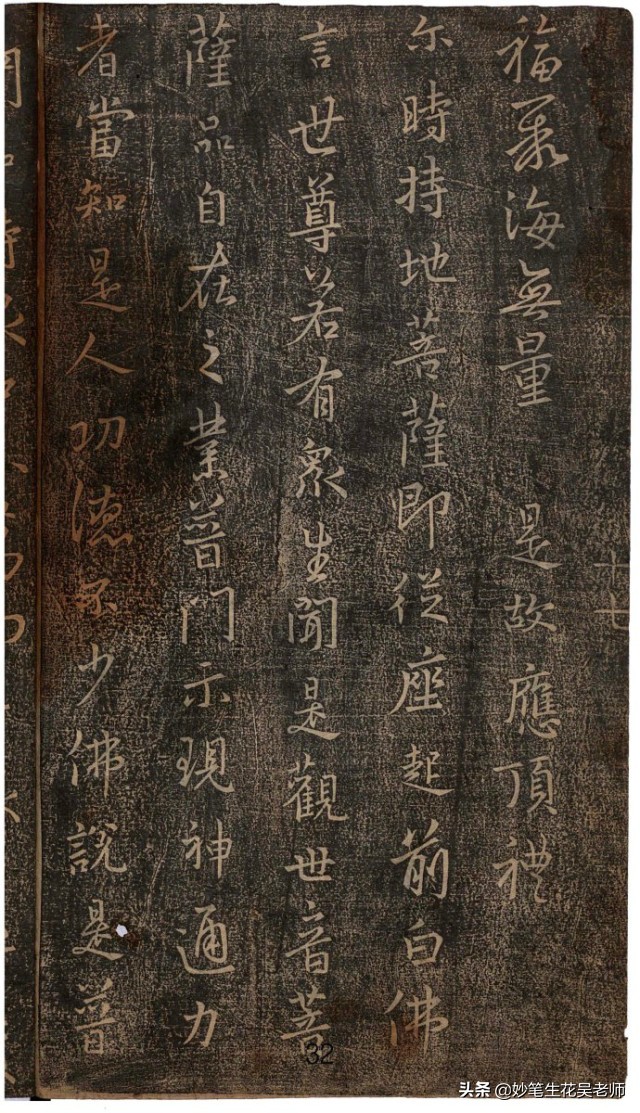 福聚海無量 是故應頂禮
尔時持地菩薩即從座起前白佛
言世尊若有眾生聞是觀世音菩
薩品自在之業普門示現神通力
者當知是人功德不少佛說是普
十七
32
头条 @妙笔生花吴老师